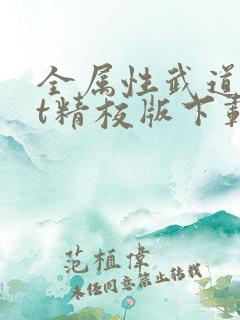 全属性武道
t精校版下载
范植伟
未经同意禁止转载